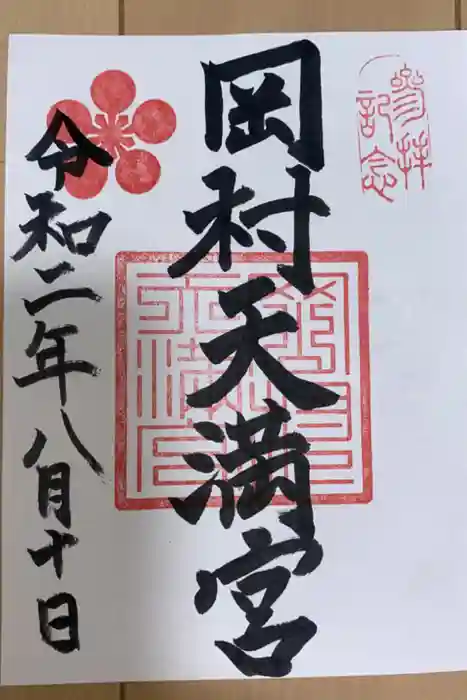 參拝
記念
岡村天満宮
令和二年八月十日